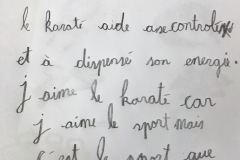 le karaté aide ase controler
et à dispensé son energie.
j aime le karaté car
j aime le sport mais
c'est le sport que